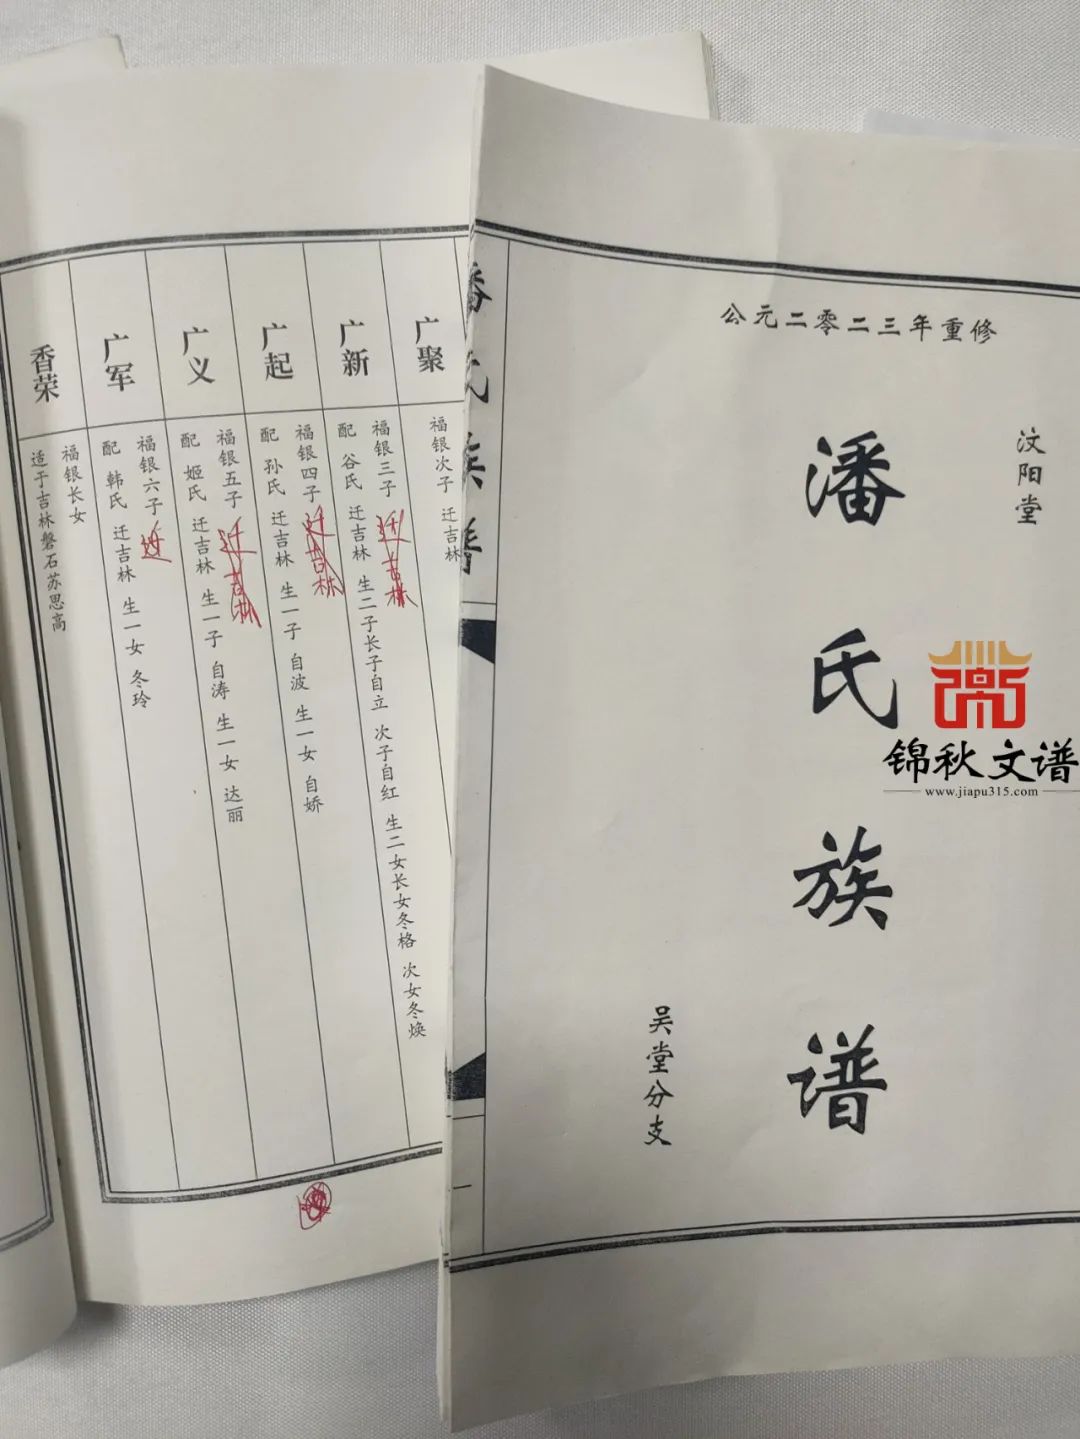 公元二零二三年重修
汶阳堂
潘氏族谱
吴堂分支
锦秋文谱
www.jiapu315.com
潘氏族谱
一
广聚
福银次子 迁吉林
广新
福银三子 迁吉林
配 谷氏 迁吉林 生二子长子自立 次子自红 生二女长女冬格 次女冬焕
广起
福银四子 迁吉林
配 孙氏 迁吉林 生一子 自波 生一女 自娇
广义
福银五子 迁吉林
配 姬氏 迁吉林 生一子 自涛 生一女 达丽
广军
福银六子
配 韩氏 迁吉林 生一女 冬玲
香荣
福银长女
适于吉林磐石苏思高